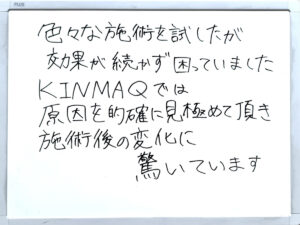 色々な施術を試したが
効果が続かず困っていました
KINMAQでは
原因を的確に見極めて頂き
施術後の変化に
驚いています